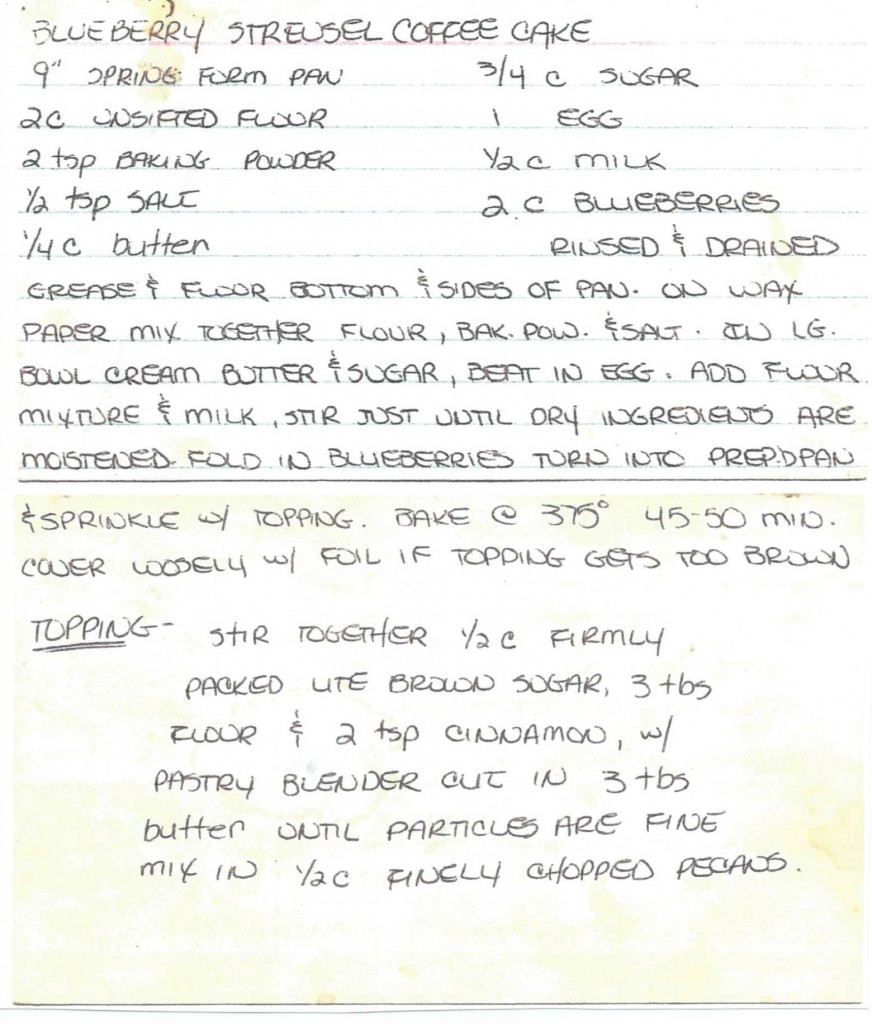 BLUEBERRY STREUSEL COFFEE CAKE
9" SPRING FORM PAN 3/4 C SUGAR
2C UNSIFTED FLOUR 1 EGG
2 tsp BAKING POWDER 1/2 C MILK
1/2 tsp SALT 2 C BLUEBERRIES
1/4 C butter RINSED & DRAINED
GREASE & FLOUR BOTTOM & SIDES OF PAN. ON WAX
PAPER MIX TOGETHER FLOUR, BAK. POW. & SALT. IN LG.
BOWL CREAM BUTTER & SUGAR, BEAT IN EGG. ADD FLOUR
MIXTURE & MILK, STIR JUST UNTIL DRY INGREDIENTS ARE
MOISTENED. FOLD IN BLUEBERRIES TURN INTO PREP'D PAN
& SPRINKLE W/ TOPPING. BAKE @ 375° 45-50 MIN.
COVER LOOSELY W/ FOIL IF TOPPING GETS TOO BROWN
TOPPING- STIR TOGETHER 1/2 C FIRMLY
PACKED LITE BROWN SUGAR, 3 tbs
FLOUR & 2 tsp CINNAMON, W/
PASTRY BLENDER CUT IN 3 tbs
butter UNTIL PARTICLES ARE FINE
MIX IN 1/2 C FINELY CHOPPED PECANS.